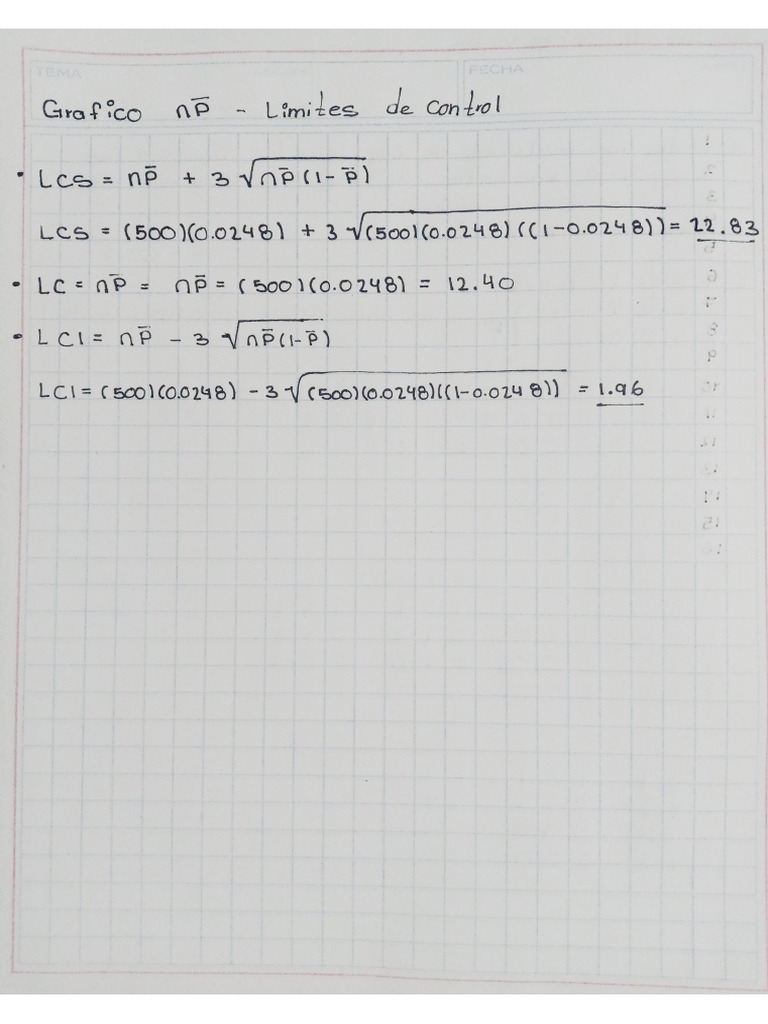 TEMA FECHA
Grafico np̅ - Limites de control
• LCS = np̅ + 3 √np̅(1-p̅)
LCS = (500)(0.0248) + 3 √(500)(0.0248)((1-0.0248)) = 22.83
• LC = np̅ = np̅ = (500)(0.0248) = 12.40
• LCI = np̅ - 3 √np̅(1-p̅)
LCI = (500)(0.0248) - 3 √(500)(0.0248)((1-0.0248)) = 1.96